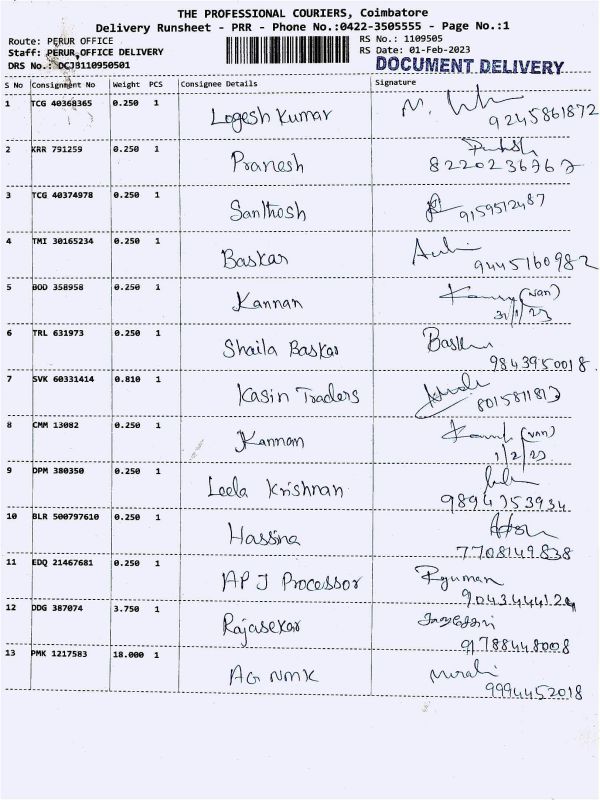 THE PROFESSIONAL COURIERS, Coimbatore
Delivery Runsheet - PRR - Phone No.:0422-3505555 - Page No.:1
Route: PERUR OFFICE
RS No.: 1109505
Staff: PERUR OFFICE DELIVERY
RS Date: 01-Feb-2023
DRS No.: DCJ8110950501
DOCUMENT DELIVERY
S No Consignment No Weight PCS Consignee Details Signature
1 TCG 40368365 0.250 1 Logesh Kumar
9245861872
2 KRR 791259 0.250 1 Pranesh
8220236767
3 TCG 40374978 0.250 1 Santhosh
9159512487
4 TMI 30165234 0.250 1 Baskar
9445160982
5 BOD 358958 0.250 1 Kannan (van)
31/1/23
6 TRL 631973 0.250 1 Shaila Baskar
9843950018
7 SVK 60331414 0.810 1 Kasin Traders
8 CMM 13082 0.250 1 Kannan (van)
1/2/23
9 DPM 380350 0.250 1 Leela Krishnan
10 BLR 500797610 0.250 1 Hassina
7708149838
11 EDQ 21467681 0.250 1 APJ Processor
12 DDG 387074 3.750 1 Rajasekar
91788448008
13 PMK 1217583 18.000 1 AG NMK Murali
9994452018